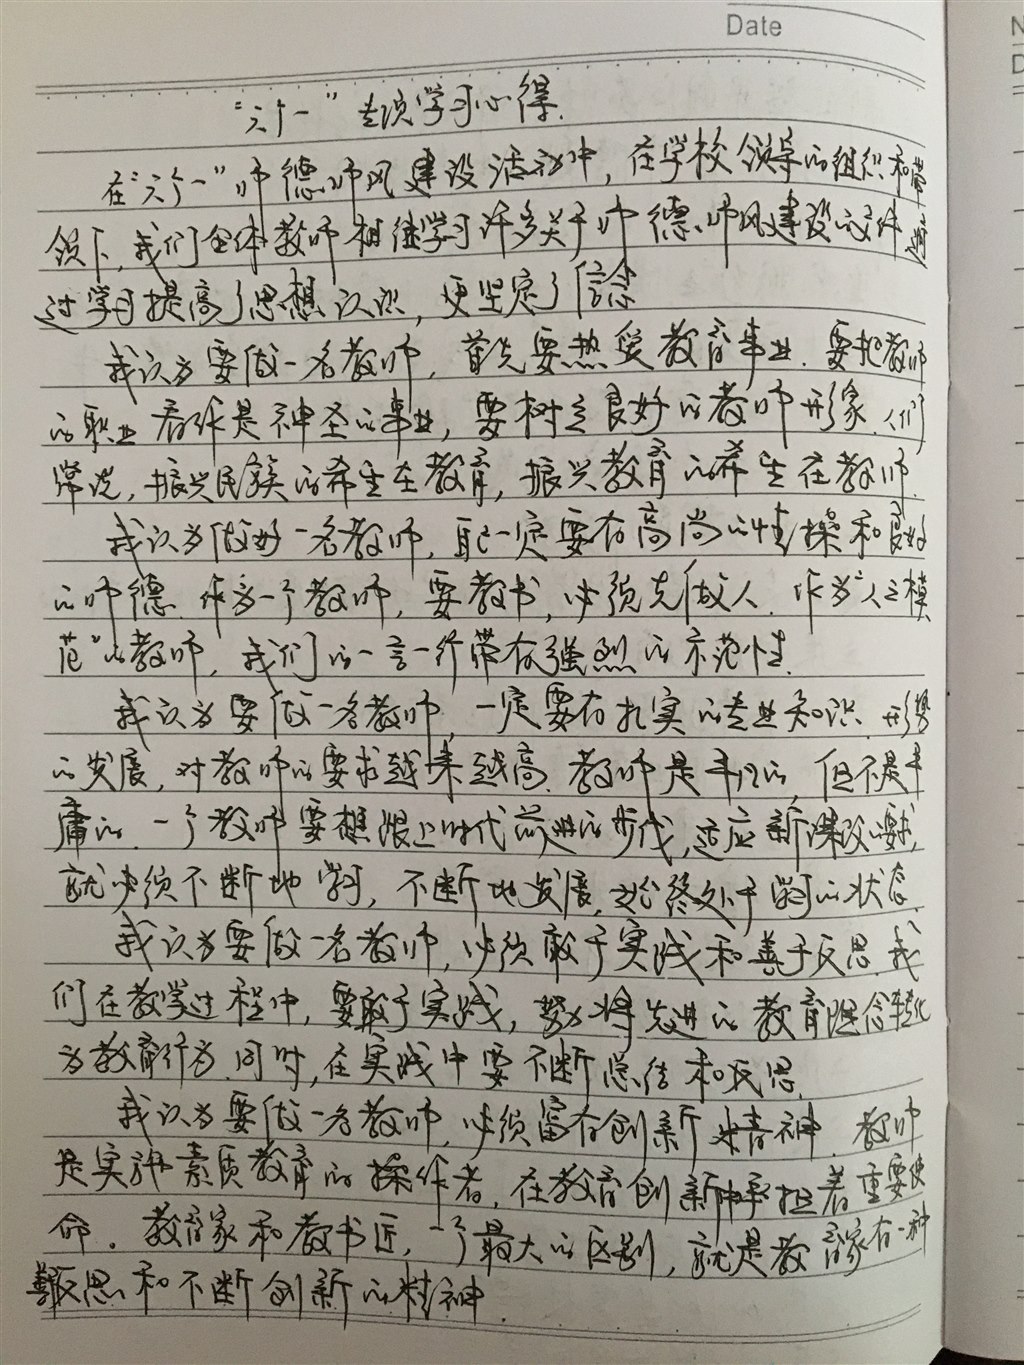 Date
“六个一”专项学习心得.
在“六个一”师德师风建设活动中，在学校领导的组织和带
领下，我们全体教师相继学习许多关于师德师风建设的文件 通
过学习提高了思想认识，更坚定了信念
我认为要做一名教师，首先要热爱教育事业．要把教师
的职业看作是神圣的事业，要树立良好的教师形象．人们
常说，振兴民族的希望在教育，振兴教育的希望在教师.
我认为做好一名教师，自己一定要有高尚的情操和良好
的师德．作为一个教师，要教书，必须先做人．作为“人之模
范”的教师，我们的一言一行带有强烈的示范性.
我认为要做一名教师，一定要有扎实的专业知识．形势
的发展，对教师的要求越来越高．教师是平凡的，但不是平
庸的．一个教师要想跟上时代前进的步伐，适应新课改的要求，
就必须不断地学习，不断地发展，始终处于学习的状态.
我认为要做一名教师，必须敢于实践和善于反思．我
们在教学过程中，要敢于实践，努力将先进的教育理念转化
为教育行为．同时，在实践中要不断总结和反思.
我认为要做一名教师，必须富有创新精神．教师
是实施素质教育的操作者，在教育创新中承担着重要使
命．教育家和教书匠，一个最大的区别，就是教育家有一种
善于反思和不断创新的精神.
N
D